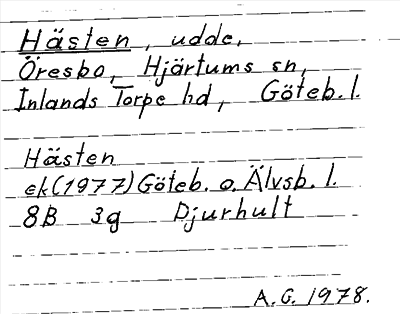 Hästen, udde,
Öresbo, Hjärtums sn,
Inlands Torpe hd, Göteb.l.
Hästen
ek(1977) Göteb. o. Älvsb. l.
8B 3g Djurhult
A.G. 1978.